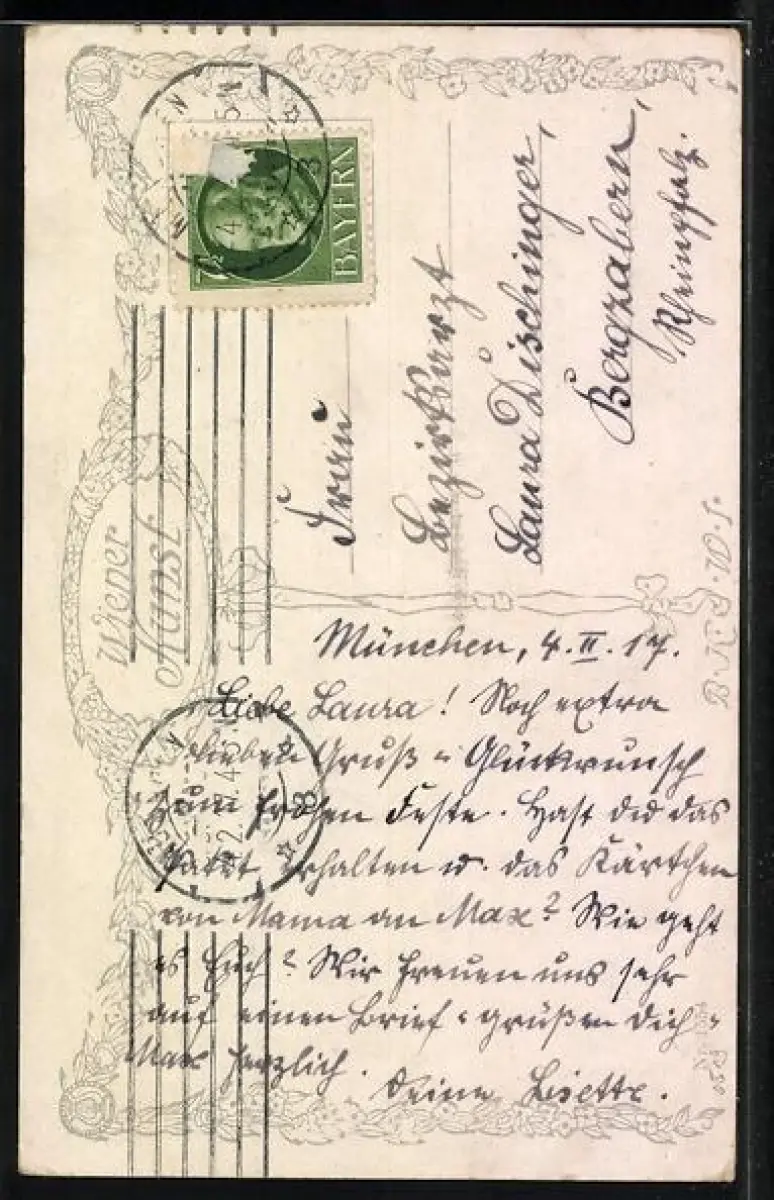 BAYERN
7½
Frau
Bezirksarzt
Laura Dischinger,
Bergzabern,
Rheinpfalz.
Wiener
Kunst
B.K.W.I.
München, 4. II. 17.
Liebe Laura! Noch extra
lieben Gruß u. Glückwunsch
zum frohen Feste. Hast Du das
Paket erhalten u. das Kärtchen
von Mama an Max? Wie geht
es Euch? Wir freuen uns sehr
auf einen Brief u. grüßen Dich u.
Max herzlich.
Deine Lisette.